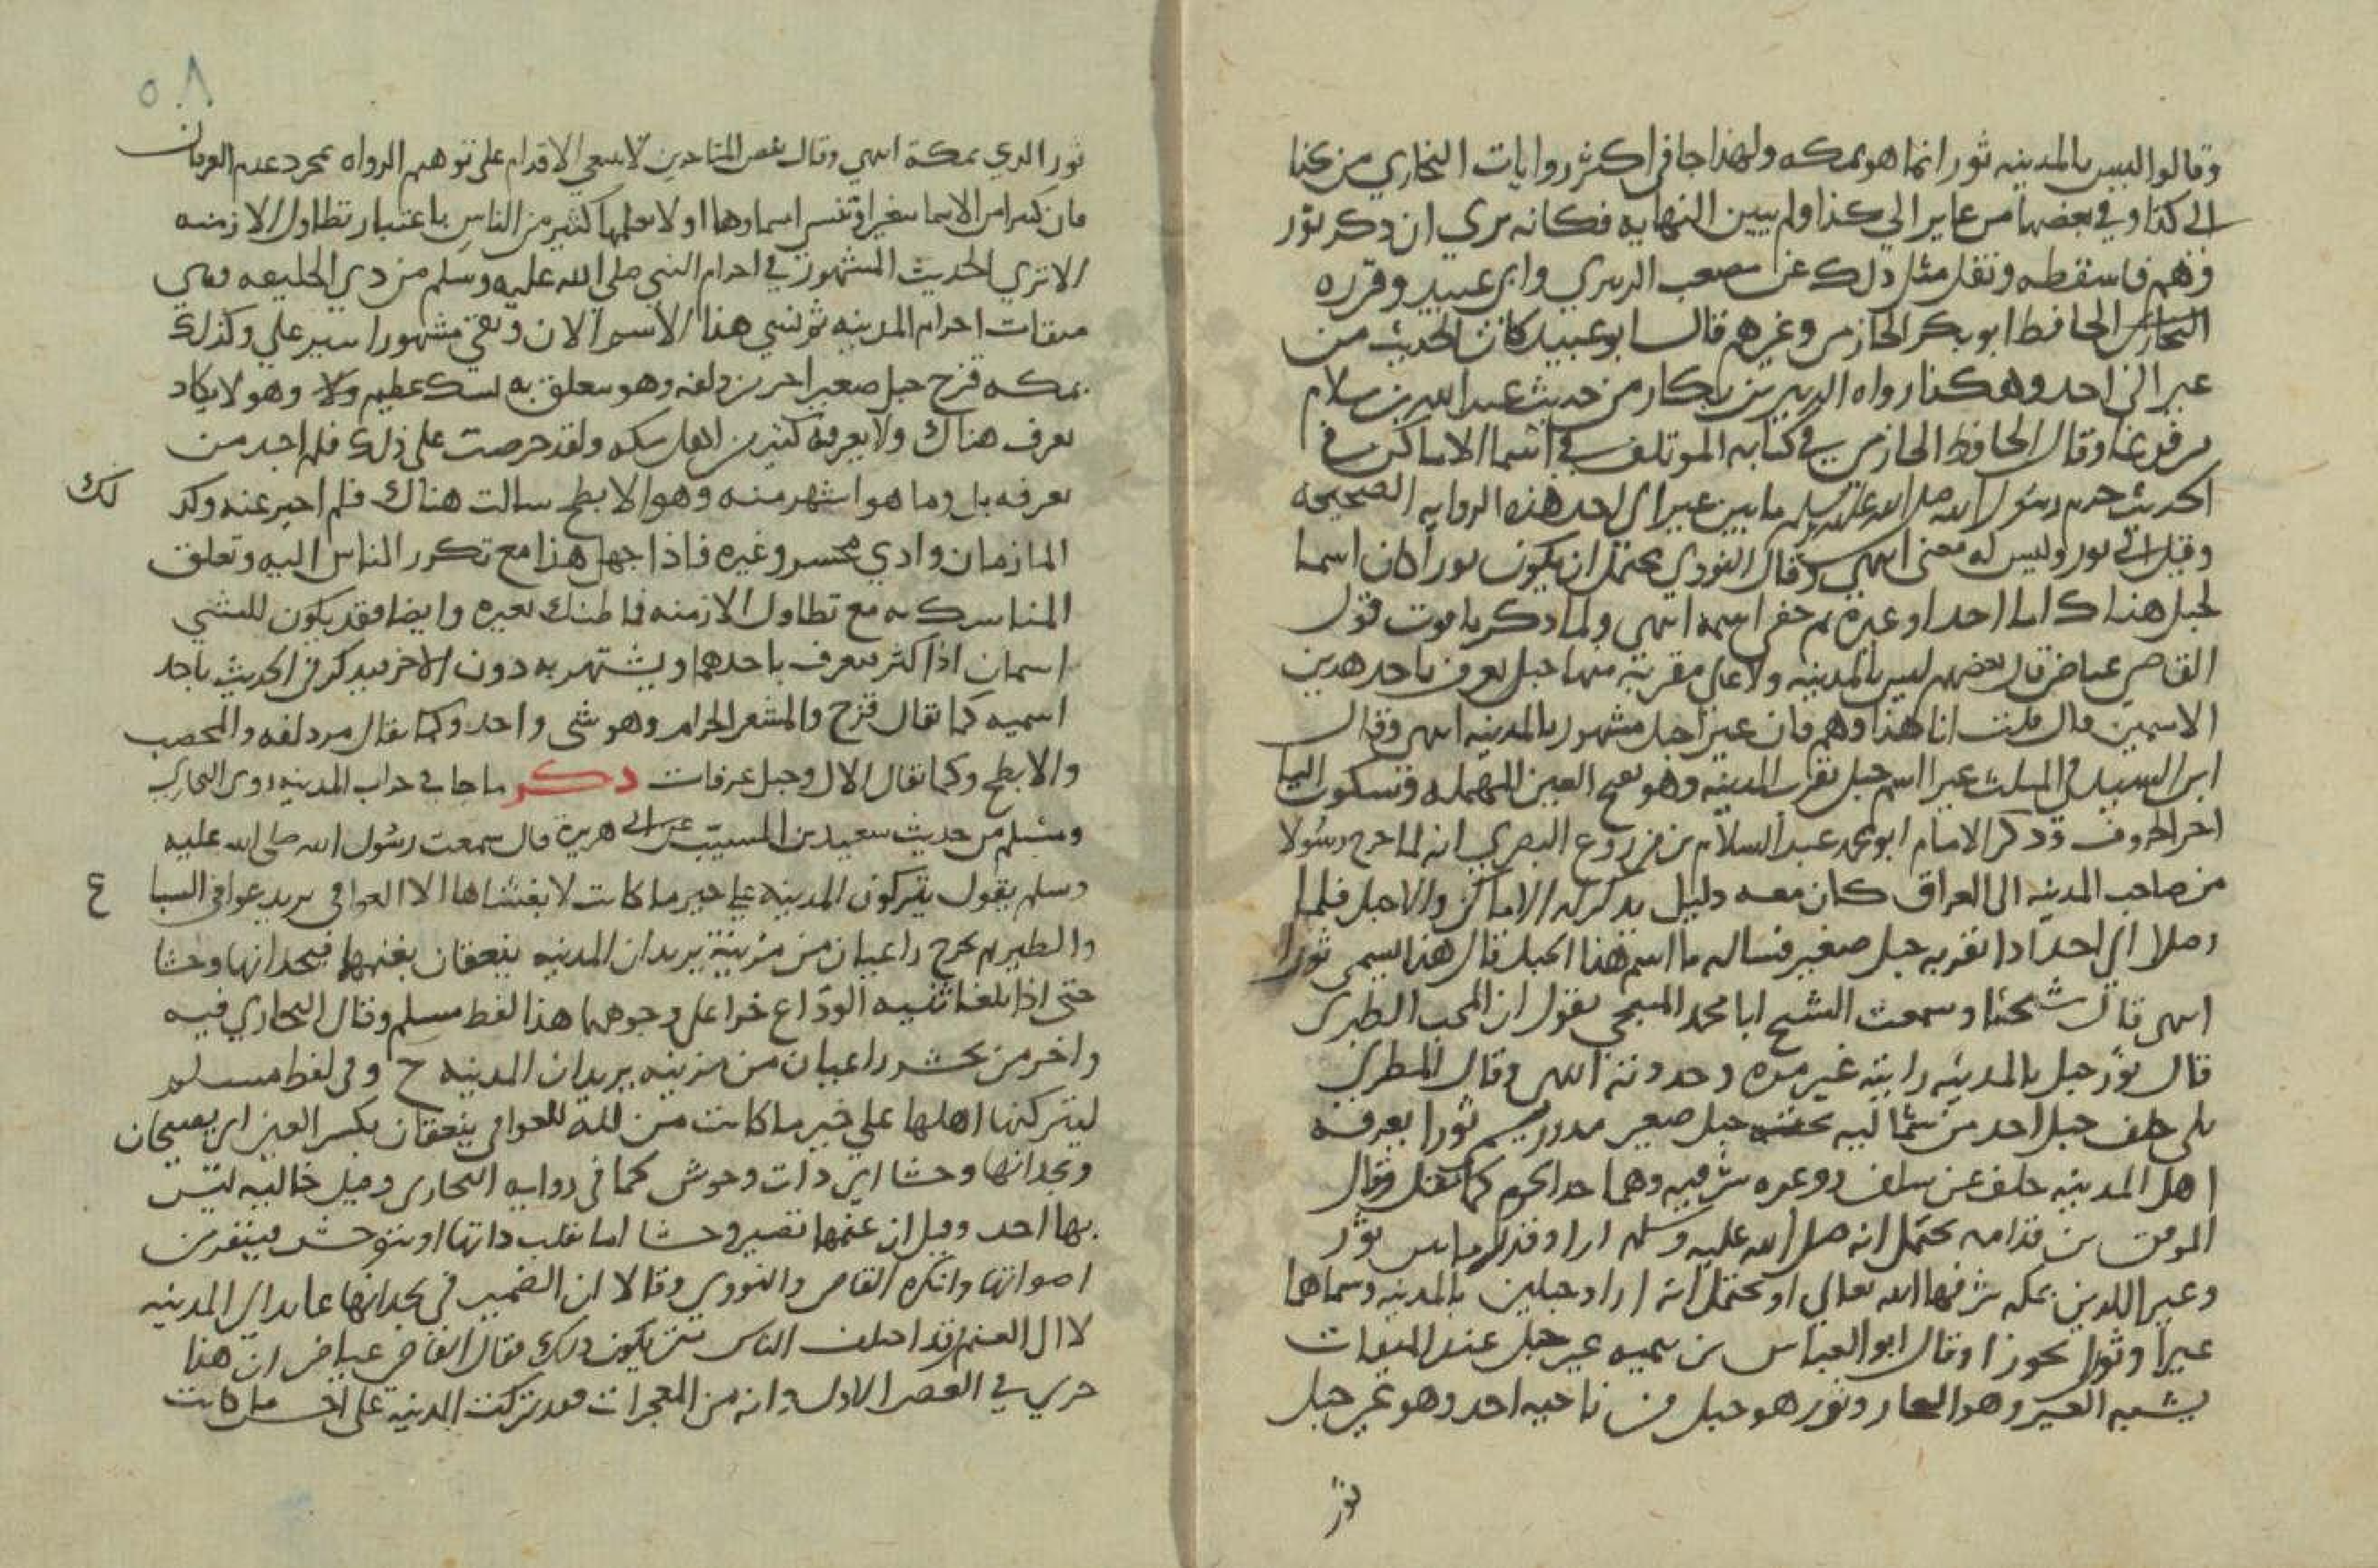 وقالوا ليس بالمدينه ثور انما هو بمكه ولهذا جا في اكثر روايات البخاري من كذا
الى كذا وفي بعضها من عاير الي كذا ولم يبين النهايه فكانه يري ان ذكر ثور
وهم فاسقطه ونقل مثل ذلك عن مصعب الزبيري وابي عبيد وقرره
الحافظ ابو بكر الحازمي وغيرهم قال ابو عبيد كان الحديث من
عير الى احد وهكذا رواه الزبير بن بكار من حديث عبد الله بن سلام
مرفوعا وقال الحافظ الحازمي في كتابه الموتلف في اسما الاماكن في
الحديث حرم رسول الله صلى الله عليه وسلم ما بين عير الى احد هذه الروايه الصحيحه
وقيل الى ثور وليس له معنى انتهى وقال النووي يحتمل ان يكون ثورا كان اسما
لجبل هناك اما احد او غيره ثم خفي اسمه انتهى ولما ذكر ياقوت قول
القاضي عياض قال بعضهم ليس بالمدينه ولا على مقربة منها جبل يعرف باحد هذين
الاسمين قال قلت انا هذا وهم فان عيرا جبل مشهور بالمدينه انتهى وقال
ابن السيد في المثلث عير اسم جبل بقرب المدينه وهو بفتح العين المهمله وسكون اليا
اخر الحروف وذكر الامام ابو محمد عبد السلام بن مزروع البصري انه لما خرج رسولا
من صاحب المدينه الى العراق كان معه دليل يذكر له الاماكن والاجبل فلما
وصلا الى احد اذا بقربه جبل صغير فساله ما اسم هذا الجبل قال هذا يسمى ثورا
انتهى قال شيخنا وسمعت الشيخ ابا محمد المنبجي يقول ان المحب الطبري
قال ثور جبل بالمدينه رايته غير مره وحددته انتهى وقال المطري
بلى خلف جبل احد من شماليه تحته جبل صغير مدور يسمى ثورا يعرفه
اهل المدينه خلف عن سلف وعيره شرقيه وهما حد الحرم كما نقل وقال
الموفق بن قدامه يحتمل انه صلى الله عليه وسلم اراد قدر ما بين ثور
وعير اللذين بمكه شرفها الله تعالي او يحتمل انه اراد جبلين بالمدينه وسماهما
عيرا وثورا تجوزا وقال ابو العباس بن تيميه عير جبل عند الميقات
يشبه العير وهو الحمار وثور هو جبل من ناحيه احد وهو غير جبل
ثور
٥٨
ثور الذي بمكة انتهى وقال بعض المتاخرين لا ينبغي الاقدام على توهيم الرواه بمجرد عدم العرفان
فان كثيرا من الاسما يتغير او تنسى اسماوها او لا يعلمها كثير من الناس باعتبار تطاول الازمنه
الا تري الحديث المشهور في احرام النبي صلى الله عليه وسلم من ذي الحليفه وهي
ميقات احرام المدينه ثم نسي هذا الاسم الان وبقي مشهورا ببير علي وكذلك
بمكه قزح جبل صغير اخر مزدلفه وهو متعلق به نسك عظيم وهو لا يكاد
يعرف هناك ولا يعرفه كثير من اهل مكه ولقد حرصت على ذلك فلم اجد من
يعرفه بل وما هو اشهر منه وهو الابطح سالت هناك فلم اخبر عنه وكذ
لك
المازمان وادي محسر وغيره فاذا جهل هذا مع تكرر الناس اليه وتعلق
المناسك به مع تطاول الازمنه فما ظنك بغيره وايضا فقد يكون للشي
اسمان اذا كثر يعرف باحدهما ويشتهر به دون الاخر فيذكر في الحديث باحد
اسميه كما يقال قزح والمشعر الحرام وهو شي واحد وكما يقال مزدلفه والمحصب
والابطح وكما يقال الال وجبل عرفات ذكر ما جا في خراب المدينه روى البخاري
ومسلم من حديث سعيد بن المسيب عن ابي هريره قال سمعت رسول الله صلى الله عليه
وسلم يقول يتركون المدينه على خير ما كانت لا يغشاها الا العوافي يريد عوافي السبا
ع
والطير ثم يخرج راعيان من مزينة يريدان المدينه ينعقان بغنمهما فيجدانها وحشا
حتى اذا بلغا ثنيه الوداع خرا على وجوههما هذا لفظ مسلم وقال البخاري فيه
واخر من يحشر راعيان من مزينه يريدان المدينه ح وفي لفظ مسلم
ليتركنها اهلها علي خير ما كانت مذلله للعوافي ينعقان بكسر العين اي يصيحان
ويجدانها وحشا اي ذات وحوش كما في روايه البخاري وقيل خاليه ليس
بها احد وقيل ان غنمها تصير وحشا اما تقلب ذاتها او تتوحش فينفر من
اصواتها وانكره القاضي والنووي وقالا ان الضمير في يجدانها عايد الى المدينه
لا الى الغنم وقد اختلف الناس متى يكون ذلك فقال القاضي عياض ان هذا
جري في العصر الاول وانه من المعجزات فقد تركت المدينه على احسن ما كانت